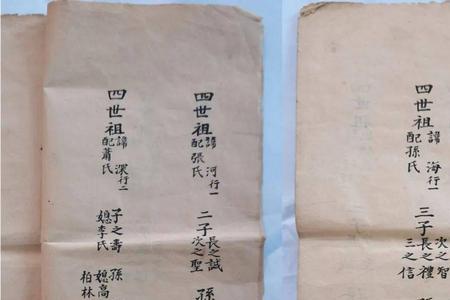 四世祖 諱海行一 配孫氏 三子 長之禮 次之智 三之信
四世祖 諱河行一 配張氏 二子 長之誠 次之聖 孫
四世祖 諱深行二 配蕭氏 子之壽 媳李氏 孫 媳高 柏林